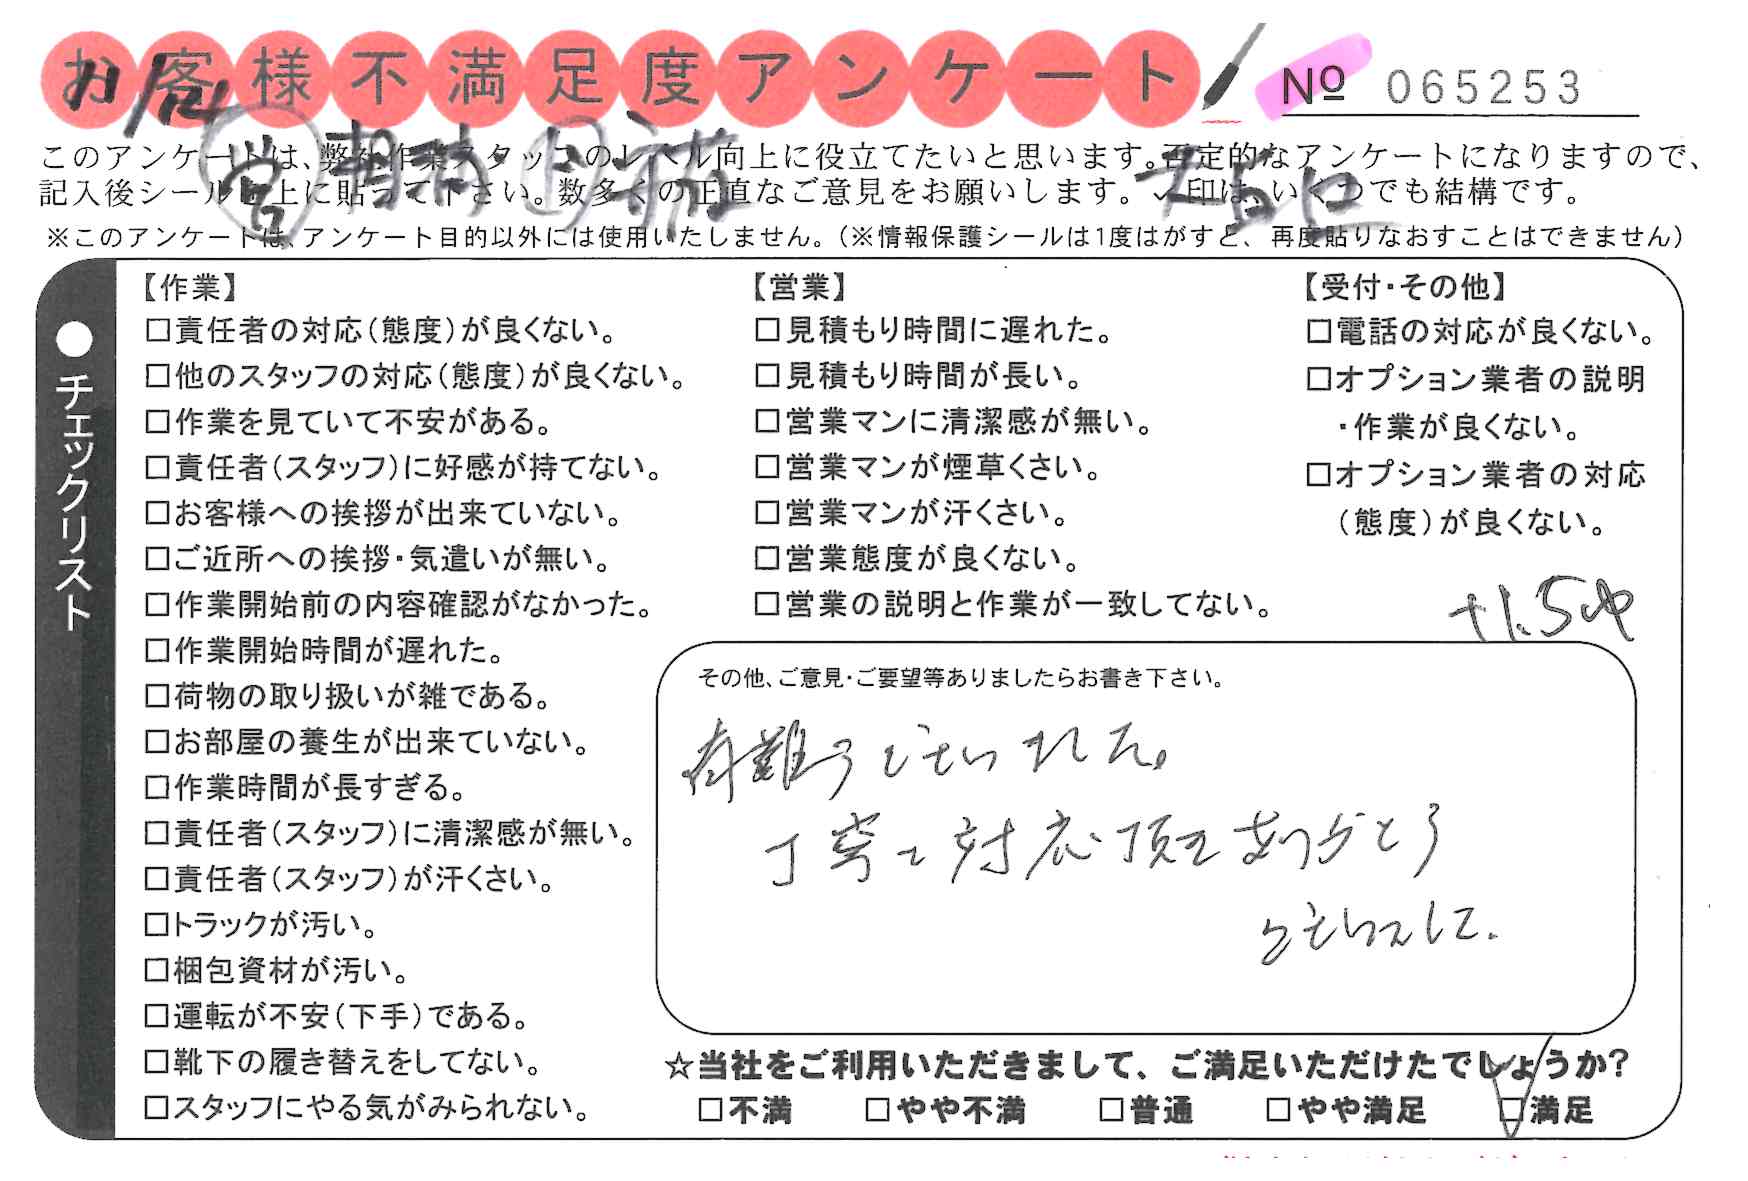 お客様不満足度アンケート
№ 065253
このアンケートは、弊社作業スタッフのレベル向上に役立てたいと思います。否定的なアンケートになりますので、
記入後シールを上に貼って下さい。数多くの正直なご意見をお願いします。✓印は、いくつでも結構です。
※このアンケートは、アンケート目的以外には使用いたしません。（※情報保護シールは1度はがすと、再度貼りなおすことはできません）
●チェックリスト
【作業】
□責任者の対応（態度）が良くない。
□他のスタッフの対応（態度）が良くない。
□作業を見ていて不安がある。
□責任者（スタッフ）に好感が持てない。
□お客様への挨拶が出来ていない。
□ご近所への挨拶・気遣いが無い。
□作業開始前の内容確認がなかった。
□作業開始時間が遅れた。
□荷物の取り扱いが雑である。
□お部屋の養生が出来ていない。
□作業時間が長すぎる。
□責任者（スタッフ）に清潔感が無い。
□責任者（スタッフ）が汗くさい。
□トラックが汚い。
□梱包資材が汚い。
□運転が不安（下手）である。
□靴下の履き替えをしてない。
□スタッフにやる気がみられない。
【営業】
□見積もり時間に遅れた。
□見積もり時間が長い。
□営業マンに清潔感が無い。
□営業マンが煙草くさい。
□営業マンが汗くさい。
□営業態度が良くない。
□営業の説明と作業が一致してない。
【受付・その他】
□電話の対応が良くない。
□オプション業者の説明
・作業が良くない。
□オプション業者の対応
（態度）が良くない。
その他、ご意見・ご要望等ありましたらお書き下さい。
有難うございました。
丁寧に対応頂きありがとう
ございました.
☆当社をご利用いただきまして、ご満足いただけたでしょうか？
□不満 □やや不満 □普通 □やや満足 □満足